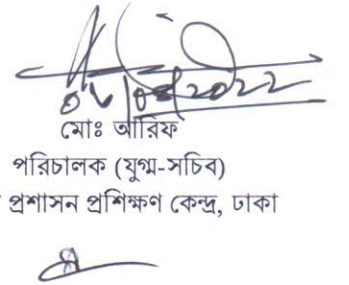 মোঃ আরিফ
পরিচালক (যুগ্ম-সচিব)
প্রশাসন প্রশিক্ষণ কেন্দ্র, ঢাকা